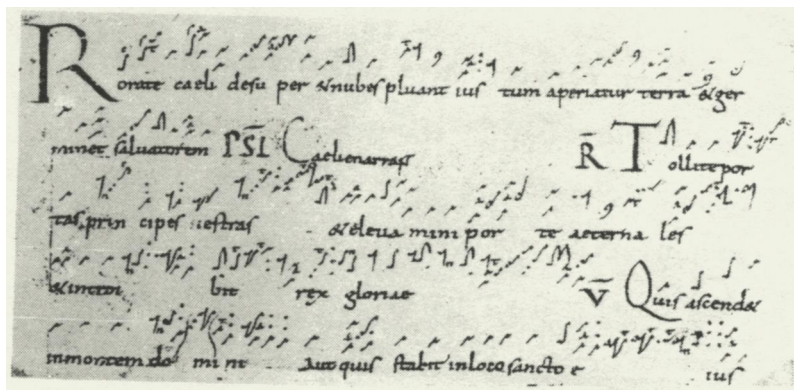 Rorate caeli desu per & nubes pluant ius tum aperiatur terra & ger
minet salvatorem PSL Caelienarrant R Tollite por
tas prin cipes vestras & eleva mini por te aeterna les
& introi bit rex gloriae V Quis ascend&
inmontem do mi ni Aut quis stabit inloco sancto e ius